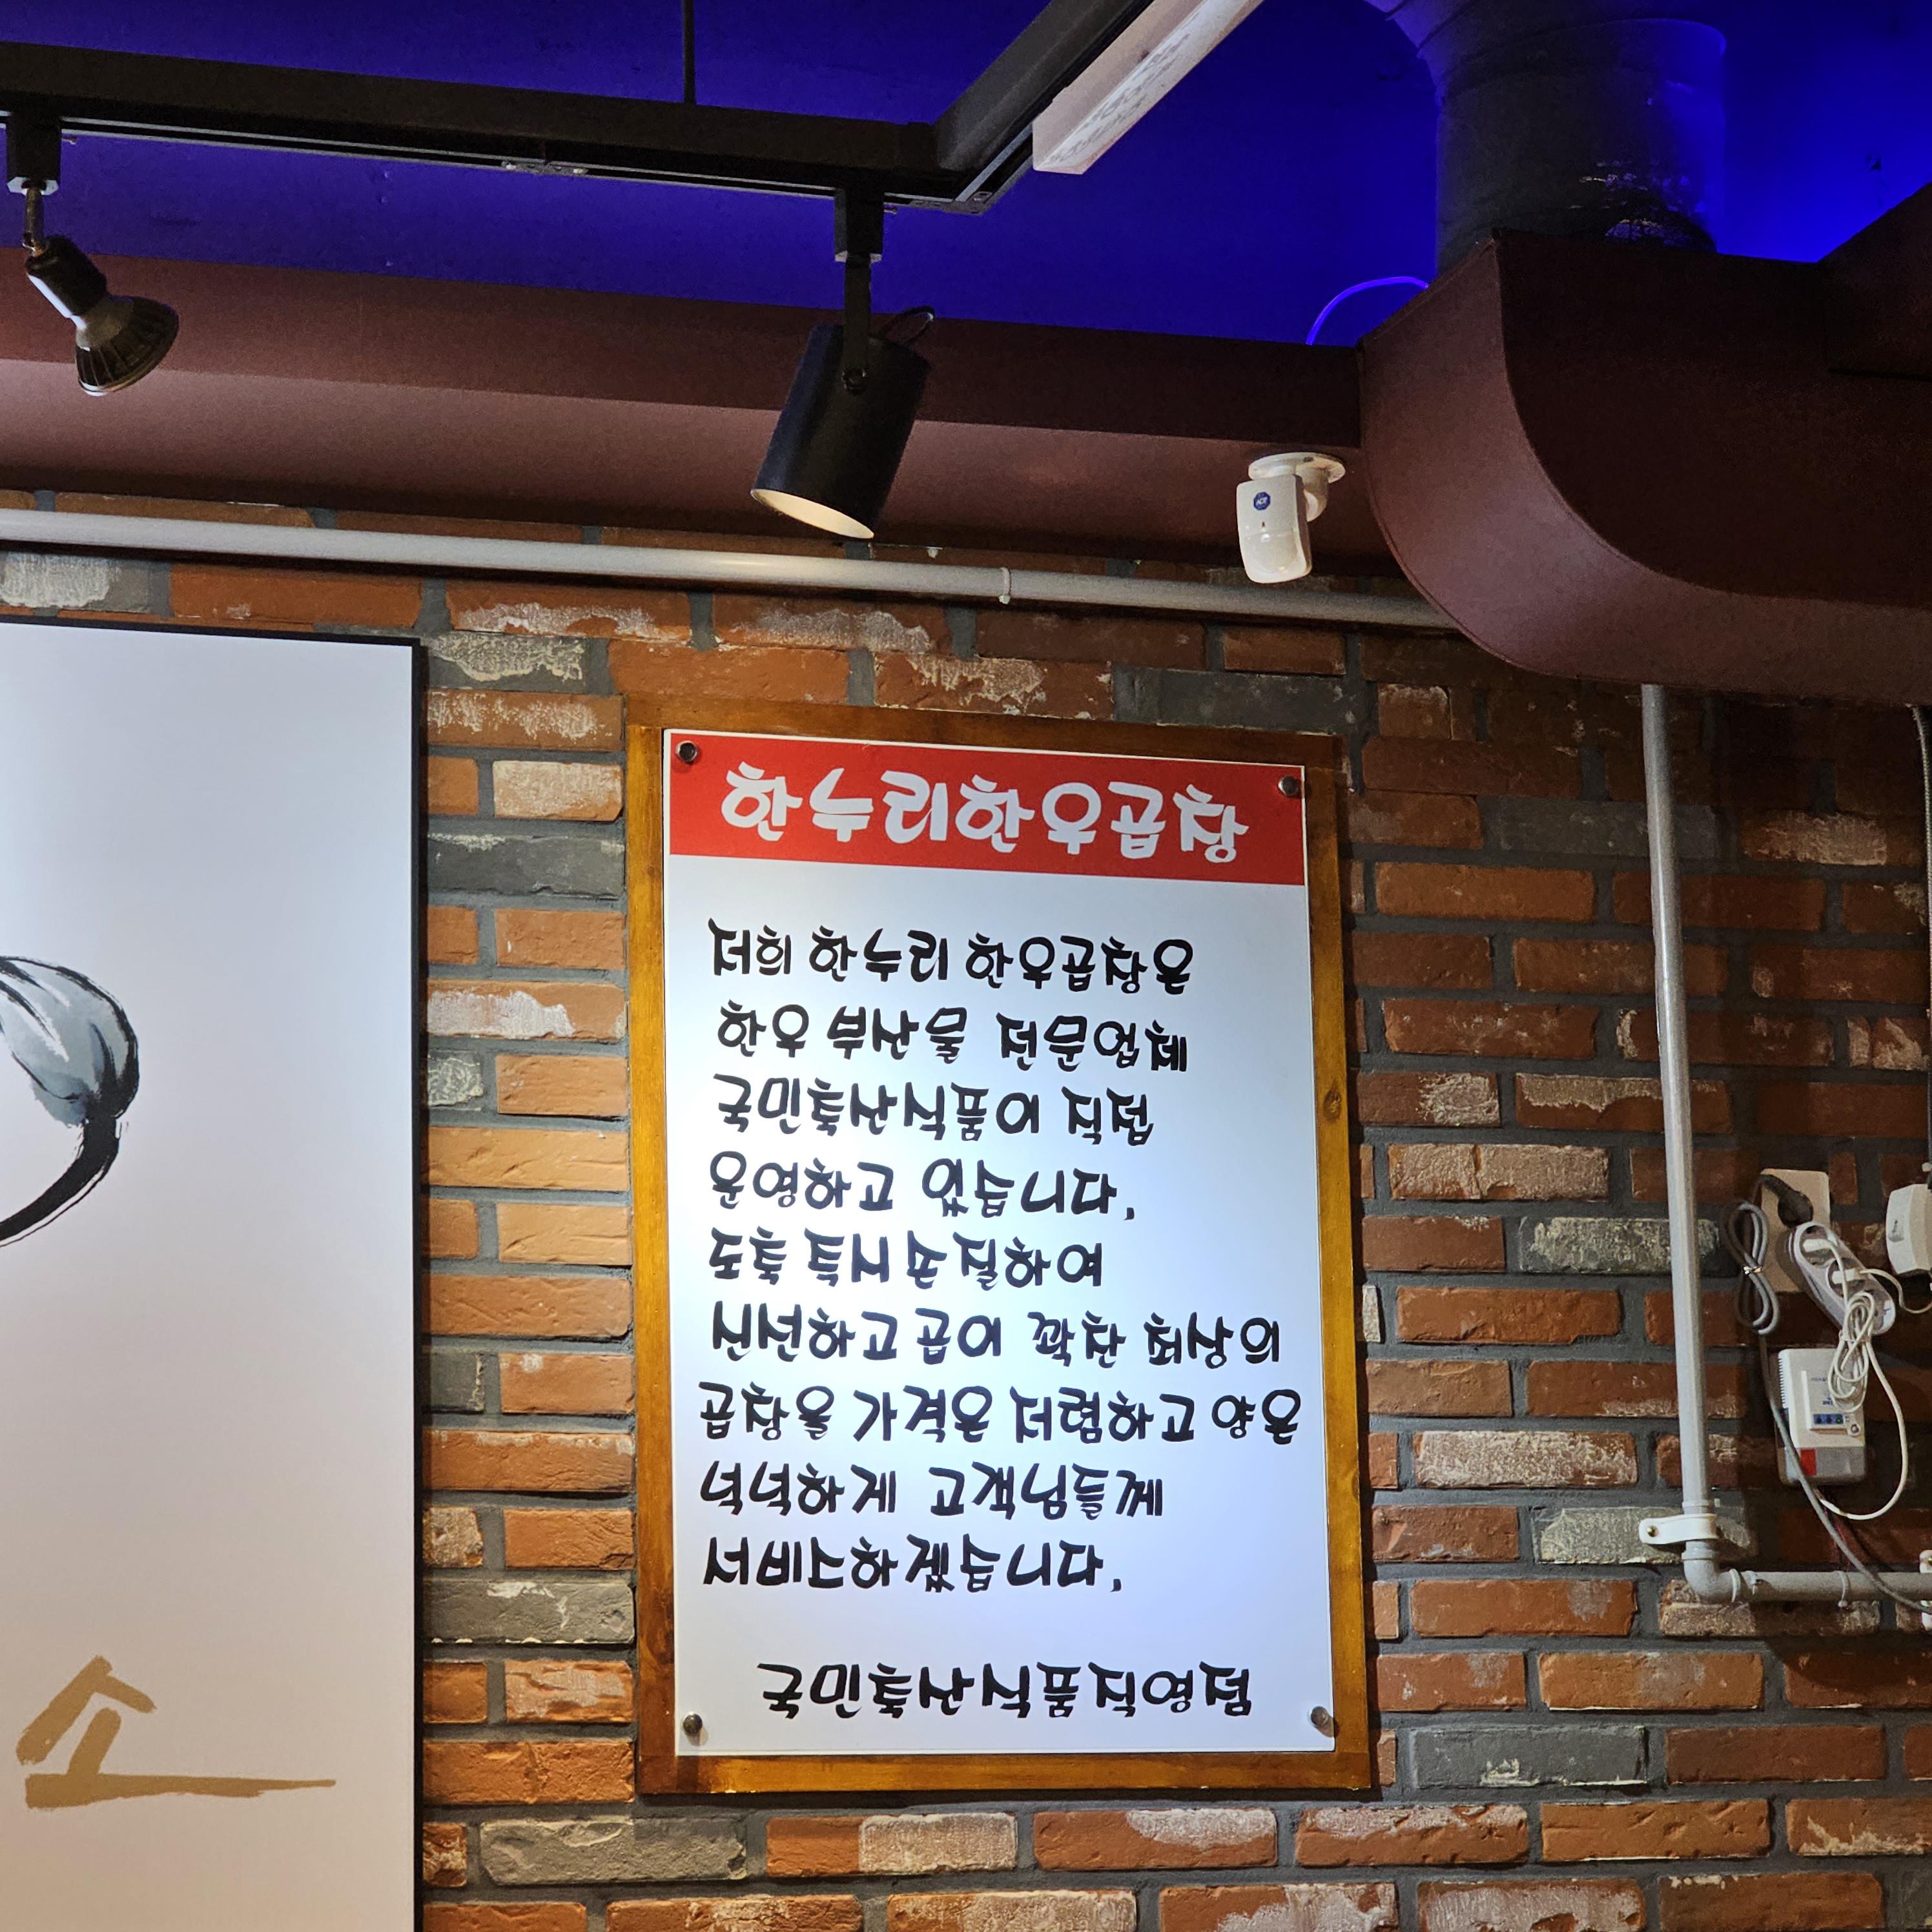 한누리한우곱창
저희 한누리 한우곱창은
한우 부산물 전문업체
국민축산식품이 직접
운영하고 있습니다.
도축 특시 손질하여
신선하고 곱이 꽉찬 최상의
곱창을 가격은 저렴하고 양은
넉넉하게 고객님들께
서비스하겠습니다.
국민축산식품직영점
소
ADT